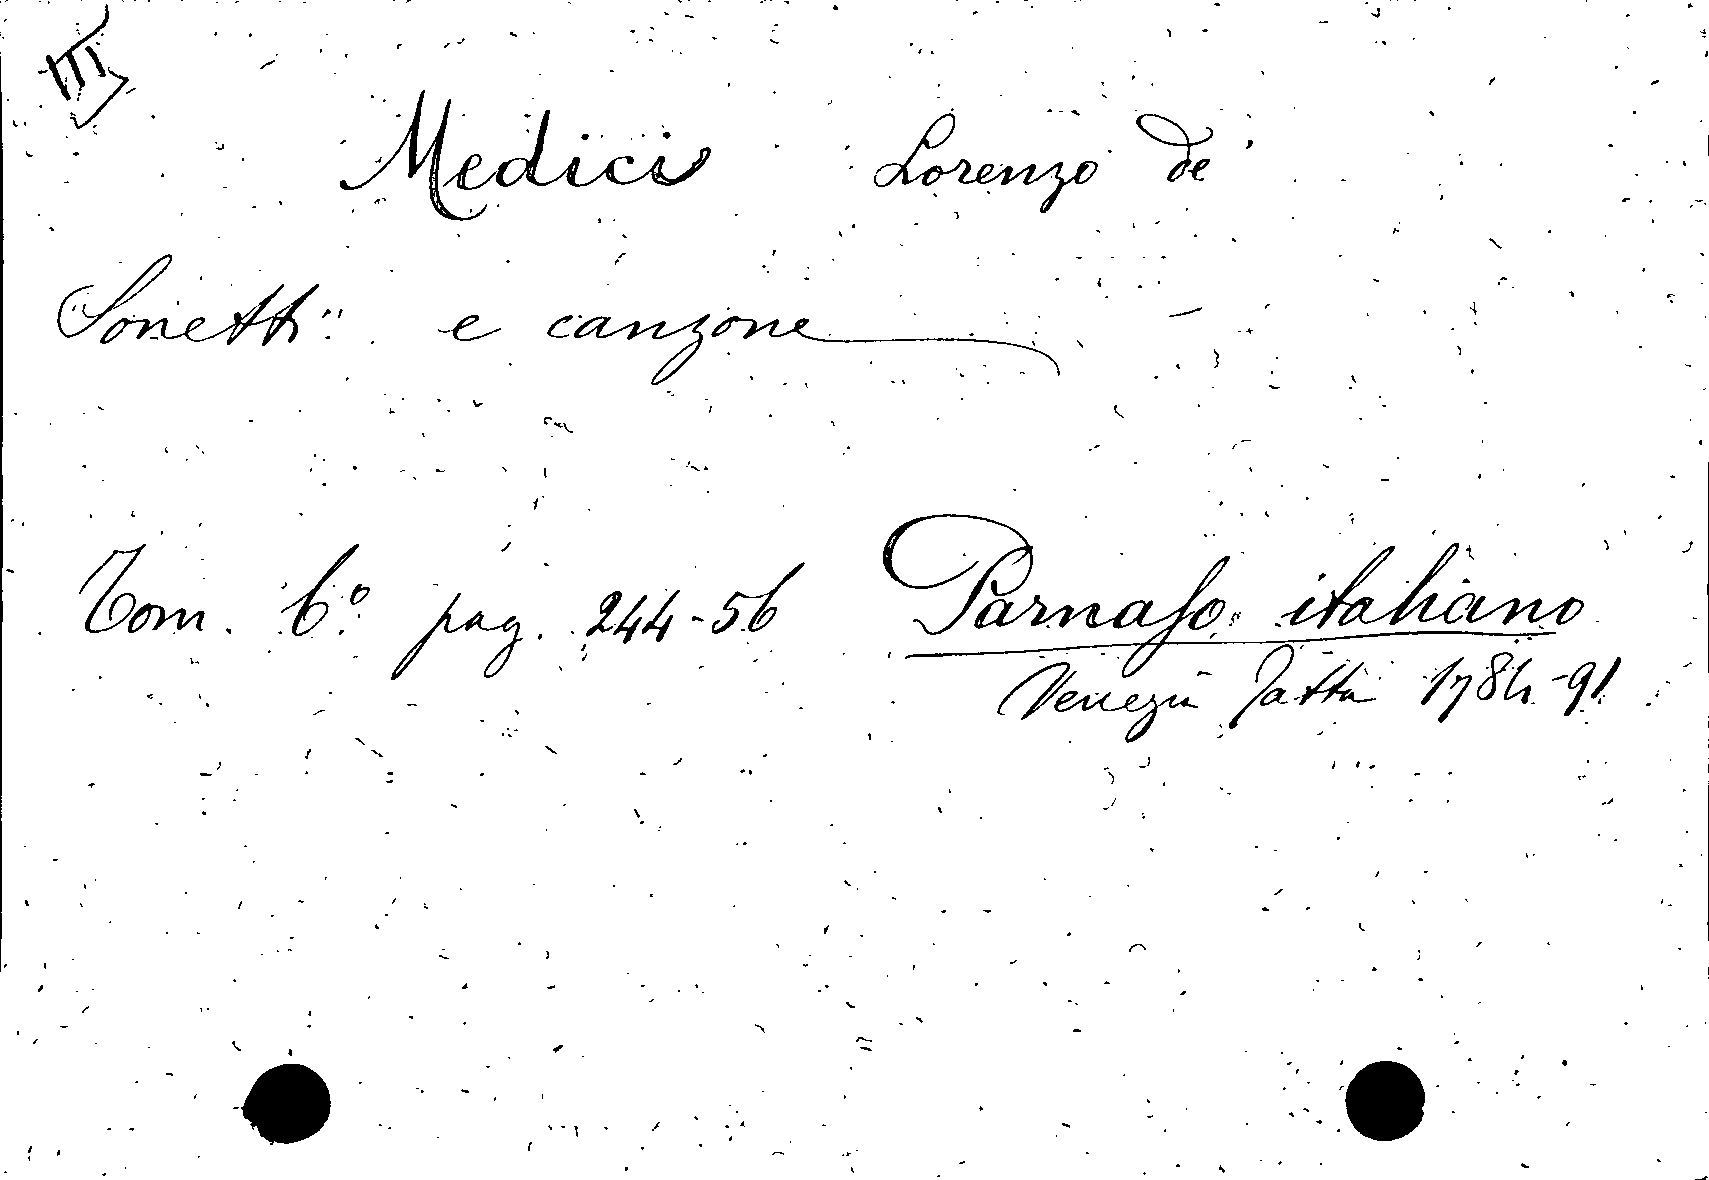 III
Medici Lorenzo de'
Sonetti e canzone
Tom. 6º pag. 244-56 Parnaso italiano
Venezia Zatta 1784-91